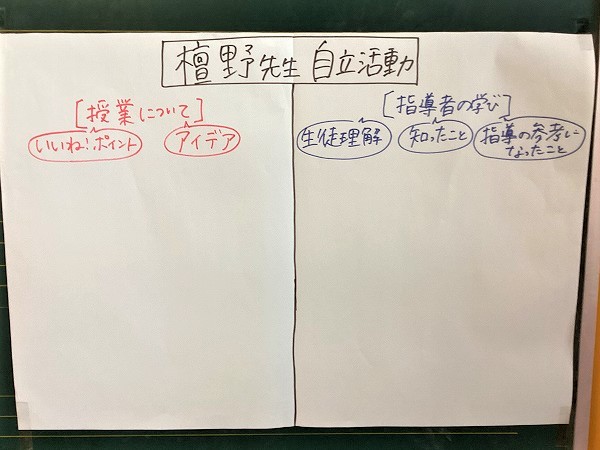 檀野先生 自立活動
[授業について]
いいね!ポイント
アイデア
[指導者の学び]
生徒理解
知ったこと
指導の参考に
なったこと